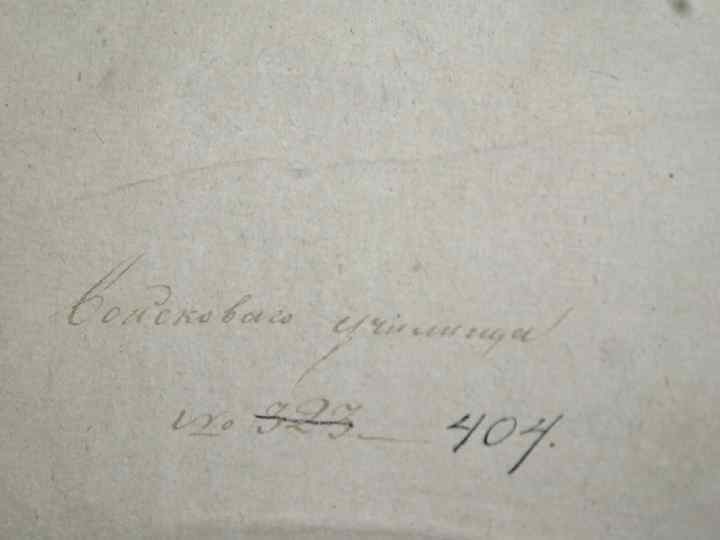 Войсковаго училища
№ 323. — 404.